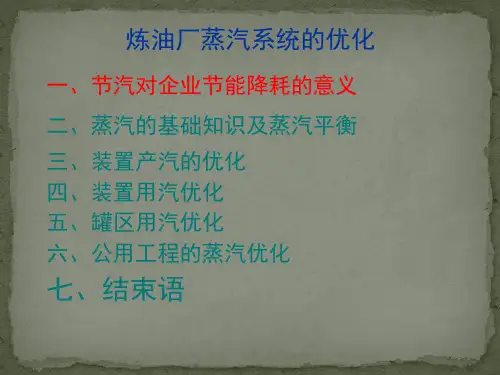 炼油厂蒸汽系统的优化
一、节汽对企业节能降耗的意义
二、蒸汽的基础知识及蒸汽平衡
三、装置产汽的优化
四、装置用汽优化
五、罐区用汽优化
六、公用工程的蒸汽优化
七、结束语